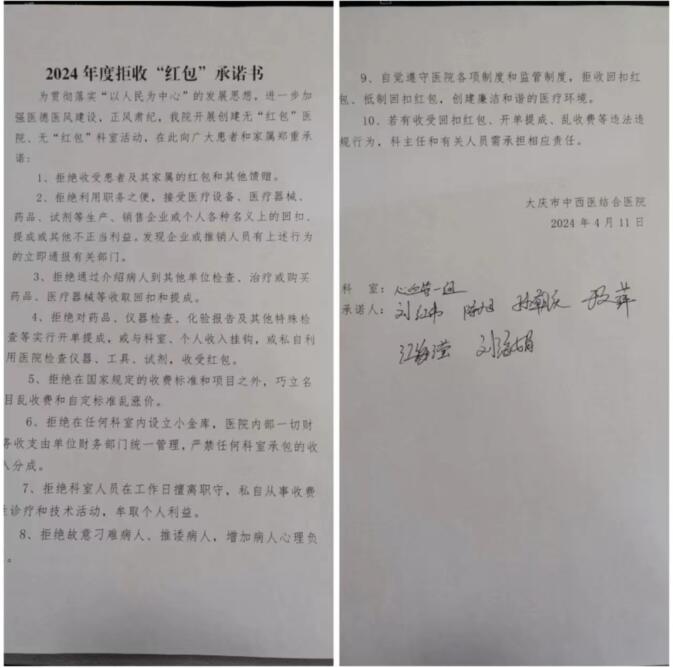 2024 年度拒收“红包”承诺书
为贯彻落实“以人民为中心”的发展思想，进一步加
强医德医风建设，正风肃纪，我院开展创建无“红包”医
院、无“红包”科室活动，在此向广大患者和家属郑重承
诺：
1、拒绝收受患者及其家属的红包和其他馈赠。
2、拒绝利用职务之便，接受医疗设备、医疗器械、
药品、试剂等生产、销售企业或个人各种名义上的回扣、
提成或其他不正当利益。发现企业或推销人员有上述行为
的立即通报有关部门。
3、拒绝通过介绍病人到其他单位检查、治疗或购买
药品、医疗器械等收取回扣和提成。
4、拒绝对药品、仪器检查、化验报告及其他特殊检
查等实行开单提成，或与科室、个人收入挂钩，或私自利
用医院检查仪器、工具、试剂，收受红包。
5、拒绝在国家规定的收费标准和项目之外，巧立名
目乱收费和自定标准乱涨价。
6、拒绝在任何科室内设立小金库，医院内部一切财
务收支由单位财务部门统一管理，严禁任何科室承包的收
入分成。
7、拒绝科室人员在工作日擅离职守，私自从事收费
性诊疗和技术活动，牟取个人利益。
8、拒绝故意刁难病人、推诿病人，增加病人心理负
。
9、自觉遵守医院各项制度和监管制度，拒收回扣红
包、抵制回扣红包，创建廉洁和谐的医疗环境。
10、若有收受回扣红包、开单提成、乱收费等违法违
规行为，科主任和有关人员需承担相应责任。
大庆市中西医结合医院
2024 年 4 月 11 日
科 室：心血管一区
承诺人：刘红伟